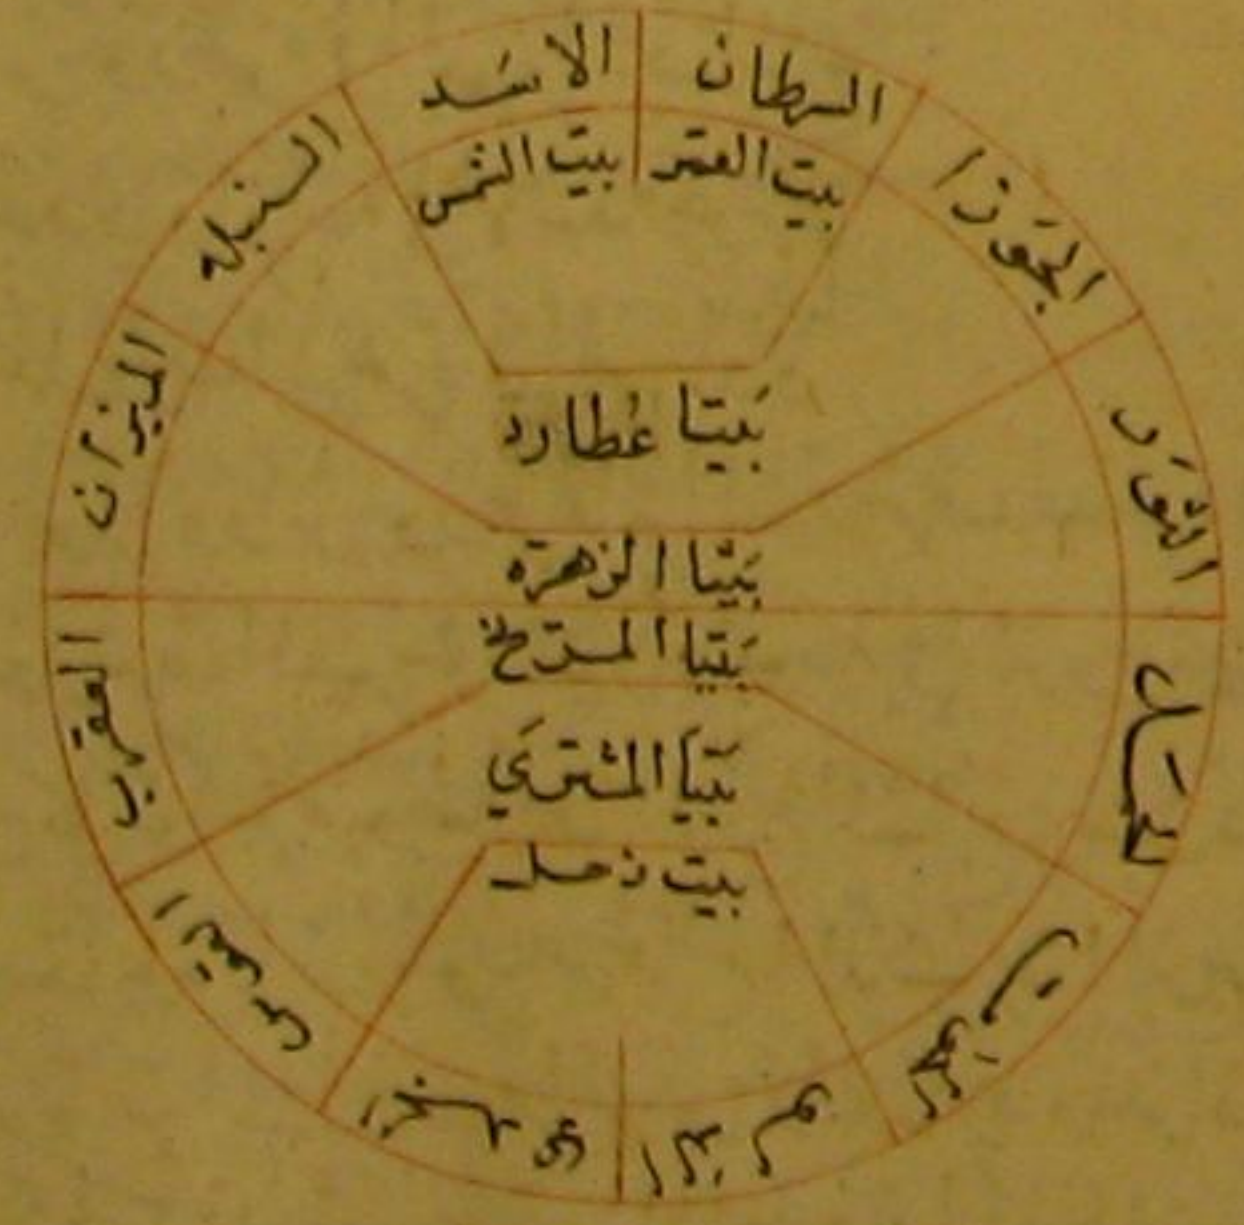 السرطان
الاسَد
السنبله
الميزان
العقرب
القوس
الجدي
الدلو
الحوت
الحمَل
الثوَر
الجَوزا
بيت القمر
بيت الشمس
بَيتا عُطارد
بَيتا الزهرة
بَيتا المريخ
بَيتا المشتَري
بيت زحل